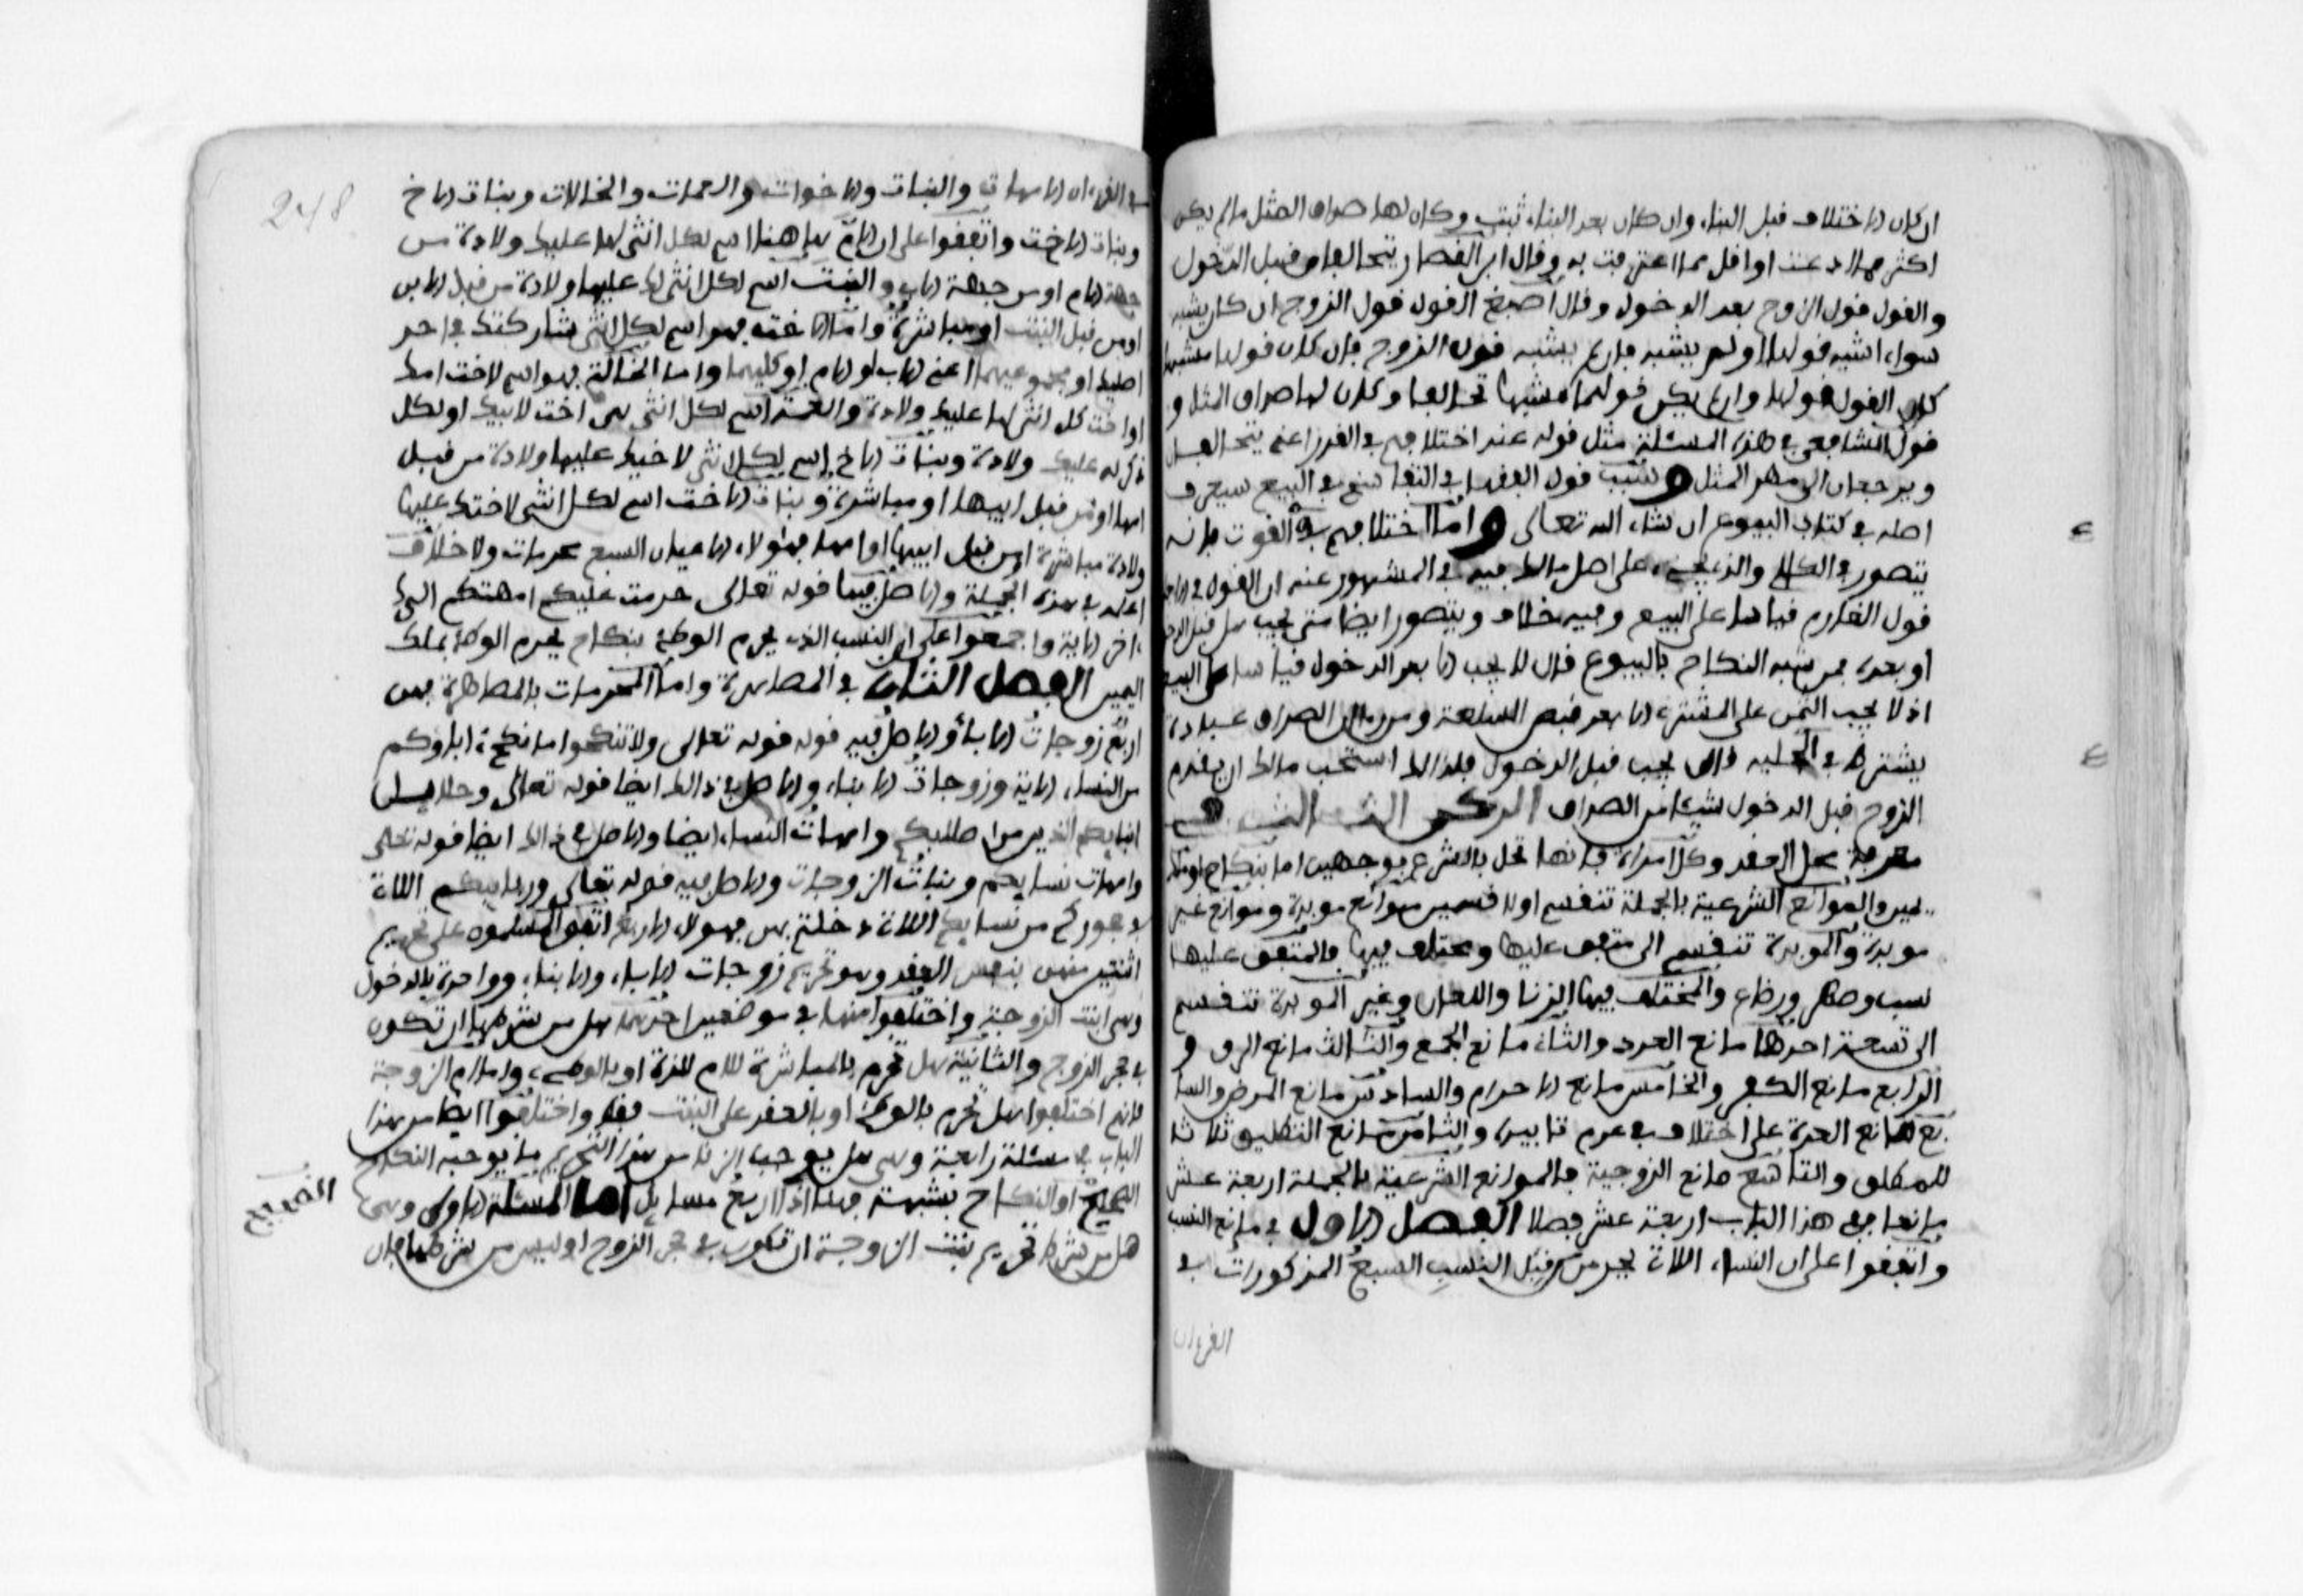 ان كان الاختلاف قبل البناء وان كان بعد البناء ثبت وكان لها صداق المثل ما لم يكن
اكثر مما ادعت او اقل مما اعترفت به وقال ابن القصار يتحالفان قبل الدخول
والقول قول الزوج بعد الدخول وقال اصبغ القول قول الزوج ان كان يشبه
سواء اشبه قولها او لم يشبه فان لم يشبه قول الزوج فان كان قولها مشبها
كان القول قولها وان لم يكن قولها مشبها تحالفا وكان لها صداق المثل و
قول الشافعي في هذه المسئلة مثل قوله عند اختلافهم في القدر اعني يتحالفان
ويرجعان الى مهر المثل وسبب قول الفقهاء في التفاسخ في البيع سيعرف
اصله في كتاب البيوع ان شاء الله تعالى واما اختلافهم في الفوت فانه
يتصور في الكالي والذي يجيء على اصل مالك فيه في المشهور عنه ان القول في الاجل
قول الغارم قياسا على البيع وفيه خلاف ويتصور ايضا متى يجب هل قبل الدخول
او بعده فمن شبه النكاح بالبيوع قال لا يجب الا بعد الدخول قياسا على البيع
اذ لا يجب الثمن على المشتري الا بعد قبض السلعة ومن رءا ان الصداق عبادة
يشترط في الحلية قال يجب قبل الدخول فلذلك استحب مالك ان يقدم
الزوج قبل الدخول شيئا من الصداق الركن الثالث في
معرفة محل العقد وكل امراة فانها تحل بالشرع بوجهين اما بنكاح او بملك
يمين والموانع الشرعية بالجملة تنقسم اولا قسمين موانع موبدة وموانع غير
موبدة والموبدة تنقسم الى متفق عليها ومختلف فيها فالمتفق عليها
نسب وصهر ورضاع والمختلف فيها الزنا واللعان وغير الموبدة تنقسم
الى تسعة احدها مانع العدد والثاني مانع الجمع والثالث مانع الرق و
الرابع مانع الكفر والخامس مانع الاحرام والسادس مانع المرض والسا
بع مانع العدة على اختلاف في عدم تابيده والثامن مانع التطليق ثلاثا
للمطلق والتاسع مانع الزوجية فالموانع الشرعية بالجملة اربعة عشر
مانعا ففي هذا الباب اربعة عشر فصلا الفصل الاول في مانع النسب
واتفقوا على ان النساء اللاتي يحرمن من قبل النسب السبع المذكورات في
القرءان
248
في القرءان الامهات والبنات والاخوات والعمات والخالات وبنات الاخ
وبنات الاخت واتفقوا على ان الام هاهنا اسم لكل انثى لها عليك ولادة من
جهة الام او من جهة الاب والبنت اسم لكل انثى لك عليها ولادة من قبل الابن
او من قبل البنت او مباشرة واما الاخت فهو اسم لكل انثى شاركتك في احد
اصليك او مجموعيهما اعني الاب او الام او كليهما واما الخالة فهو اسم لاخت امك
او اخت كل انثى لها عليك ولادة والعمة اسم لكل انثى هي اخت لابيك او لكل
ذكر له عليك ولادة وبنات الاخ اسم لكل انثى لاخيك عليها ولادة من قبل
امها او من قبل ابيها او مباشرة وبنات الاخت اسم لكل انثى لاختك عليها
ولادة مباشرة او من قبل ابيها او امها فهولاء الاعيان السبع محرمات ولا خلاف
اعلمه في هذه الجملة والاصل فيها قوله تعالى حرمت عليكم امهتكم الى
ءاخر الاية واجمعوا على ان النسب الذي يحرم الوطئ بنكاح يحرم الوطئ بملك
اليمين الفصل الثاني في المصاهرة واما المحرمات بالمصاهرة فهن
اربع زوجات الاباء والاصل فيه قوله قوله تعالى ولا تنكحوا ما نكح ءاباؤكم
من النساء الاية وزوجات الابناء والاصل في ذالك ايضا قوله تعالى وحلايل
ابنايكم الذين من اصلبكم وامهات النساء ايضا والاصل في ذالك ايضا قوله تعالى
وامهات نسايكم وبنات الزوجات والاصل فيه قوله تعالى وربايبكم اللاتي
في حجوركم من نسايكم اللاتي دخلتم بهن فهولاء الاربع اتفق المسلمون على تحريم
اثنتين منهن بنفس العقد وهو تحريم زوجات الاباء والابناء وواحدة بالدخول
وهي ابنت الزوجة واختلفوا منها في موضعين احدهما هل من شرطها ان تكون
في حجر الزوج والثانية هل تحرم بالمباشرة للام للذة او بالوطئ واما ام الزوجة
فانهم اختلفوا هل تحرم بالوطئ او بالعقد على البنت فقط واختلفوا ايضا من هذا
الباب في مسئلة رابعة وهي هل يوجب الزنا من هذا التحريم ما يوجبه النكاح
الصحيح او النكاح بشبهة فهنا اذا اربع مسايل اما المسئلة الاولى وهي
هل من شرط تحريم بنت الزوجة ان تكون في حجر الزوج او ليس من شرطها فان